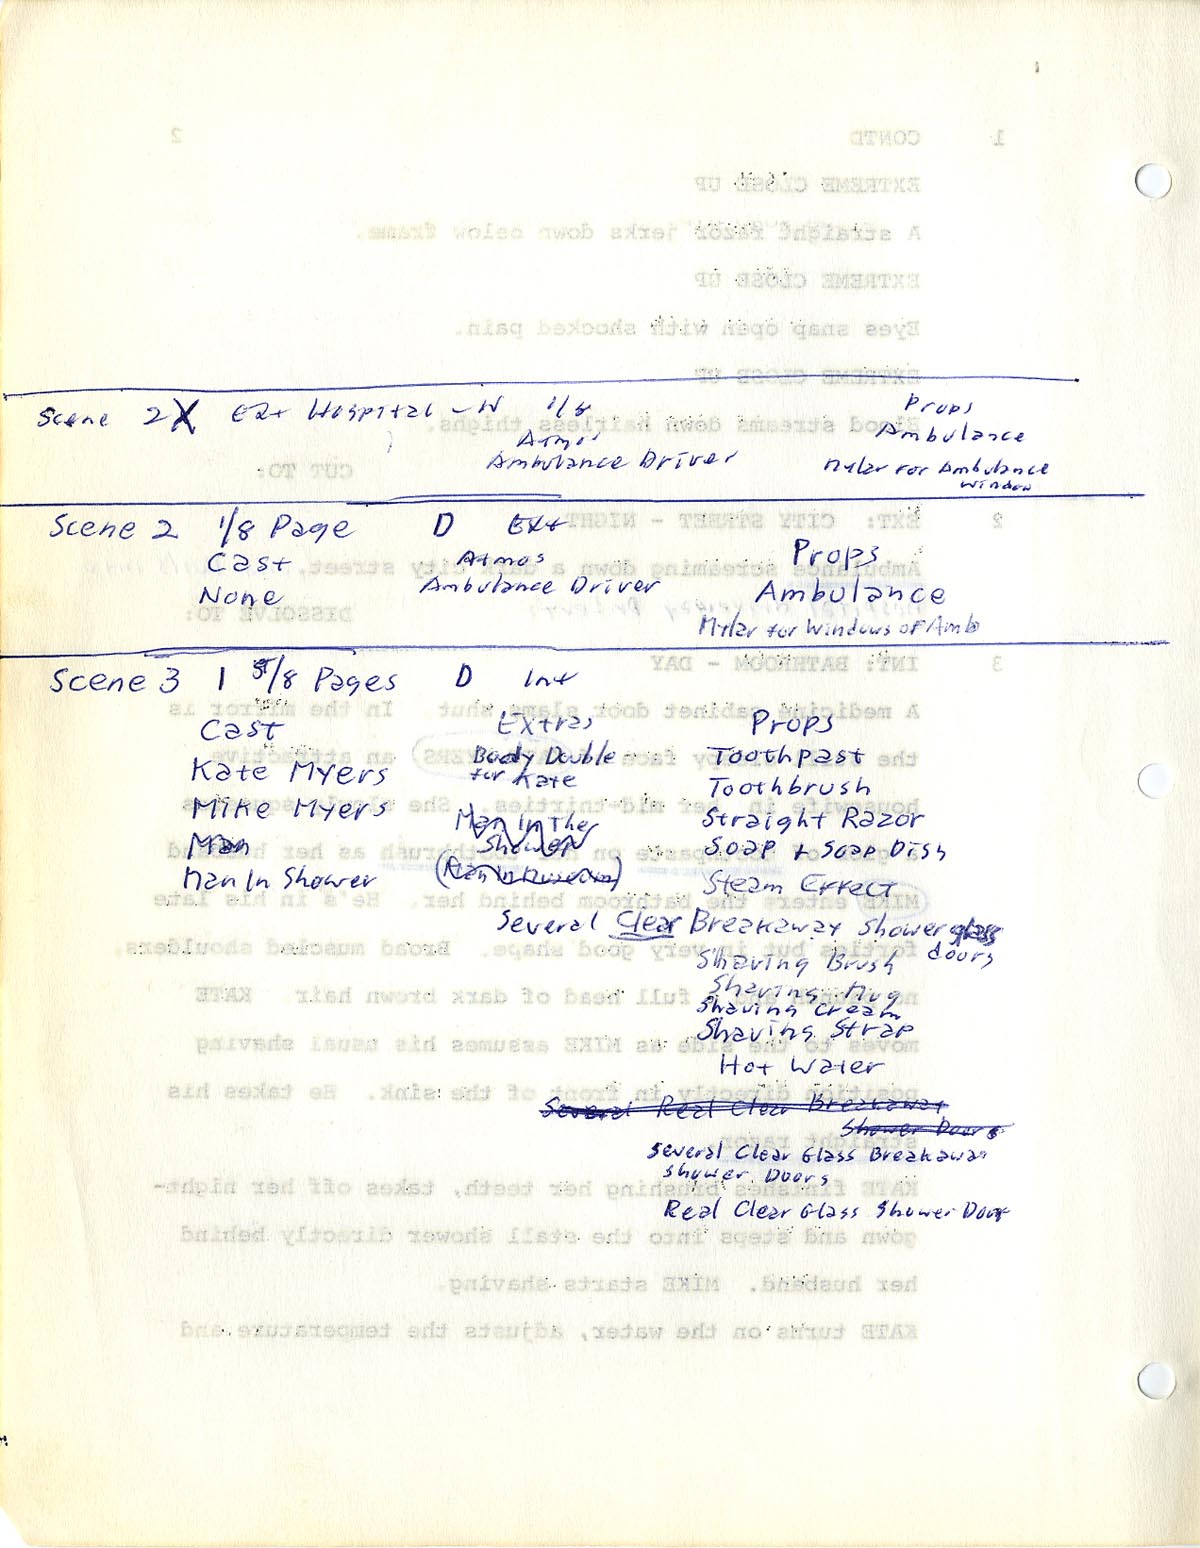 Scene 2X Ext Hospital - N 1/8 Props
Atmos Ambulance
Ambulance Driver Mylar for Ambulance
Window
Scene 2 1/8 Page D Ext
Cast Atmos Props
None Ambulance Driver Ambulance
Mylar for Windows of Amb
Scene 3 1 5/8 Pages D Int
Cast Extras Props
Kate Myers Body Double Toothpast
for Kate Toothbrush
Mike Myers Man In The Straight Razor
Man Shower Soap + Soap Dish
Man In Shower (Man In Museum) Steam Effect
Several Clear Breakaway Shower glass
doors
Shaving Brush
Shaving Mug
Shaving Cream
Shaving Strap
Hot Water
Several Real Clear Breakaway
Shower Doors
Several Clear Glass Breakaway
Shower Doors
Real Clear Glass Shower Door